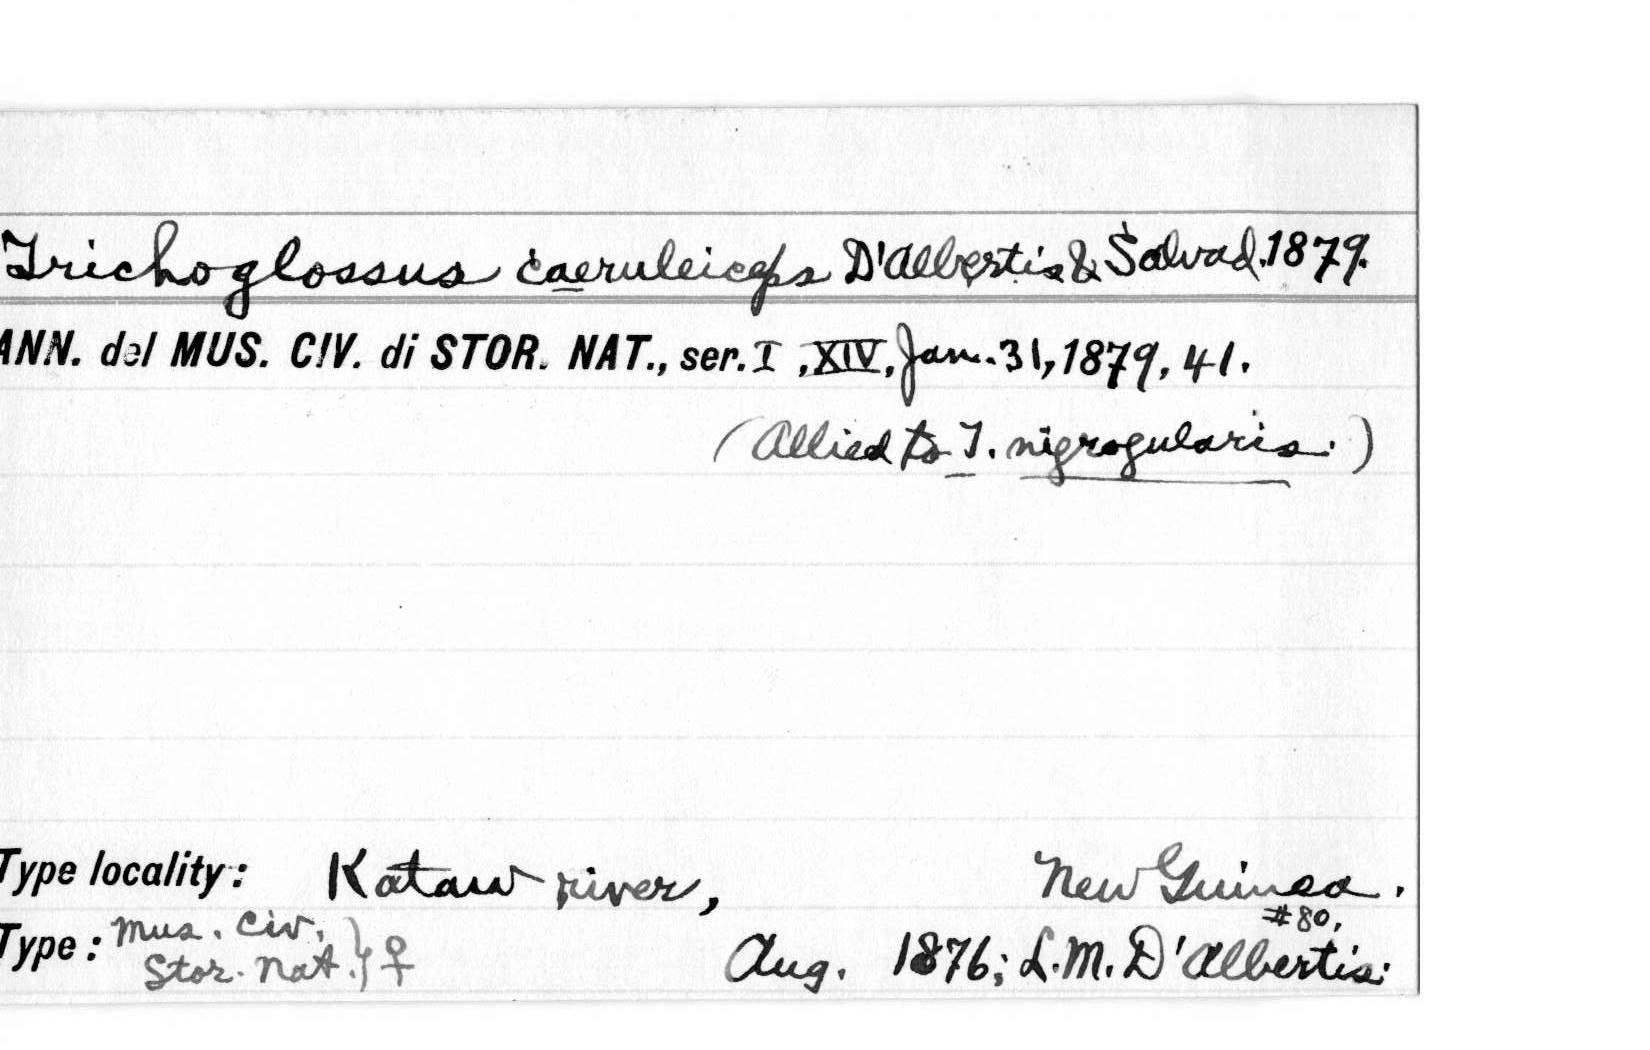 Trichoglossus caeruleiceps D'Albertis & Salvad. 1879.
ANN. del MUS. CIV. di STOR. NAT., ser. I, XIV, Jan. 31, 1879, 41.
(Allied to T. nigrogularis.)
Type locality: Kataw river, New Guinea.
#80,
Type: Mus. Civ. Stor. Nat. } ♀ Aug. 1876; L.M. D'Albertis.